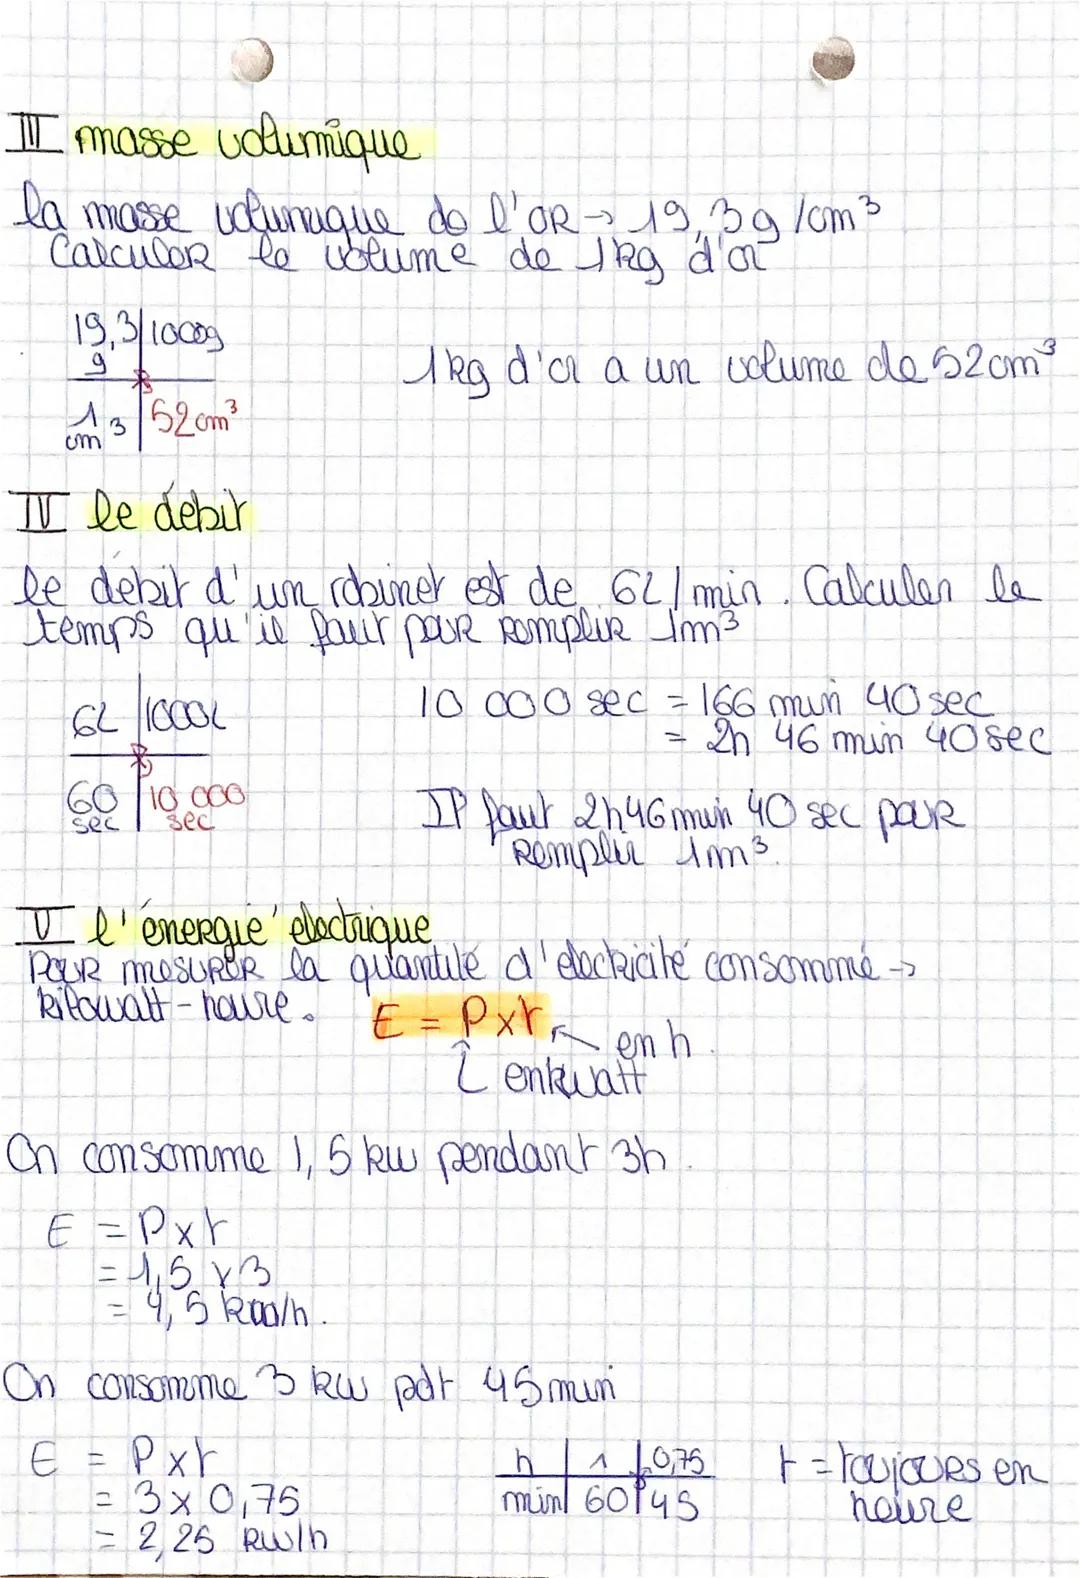 III masse volumique
la masse volumique de l'OR → 19,3g/cm³
Calculer le volume de 1kg d'or
19,3 g | 1000g
1 cm³ | 52cm³
1kg d'or a un volume de 52cm³
IV le débit
le débit d'un robinet est de 6L/min. Calculer le
temps qu'il faut pour remplir 1m³
6L | 1000L
60 sec | 10 000 sec
10 000 sec = 166 min 40 sec
= 2h 46 min 40 sec
Il faut 2h46min 40 sec pour
remplir 1m³.
V l'énergie électrique
Pour mesurer la quantité d'électricité consommé →
kilowatt-heure.
E = P x t
en h.
en kwatt
On consomme 1,5 kw pendant 3h.
E = P x t
= 1,5 x 3
= 4,5 kw/h.
On consomme 3 kw pdt 45min
E = P x t
= 3 x 0,75
= 2,25 kw/h
h | 1 | 0,75
min | 60 | 45
t = toujours en
heure